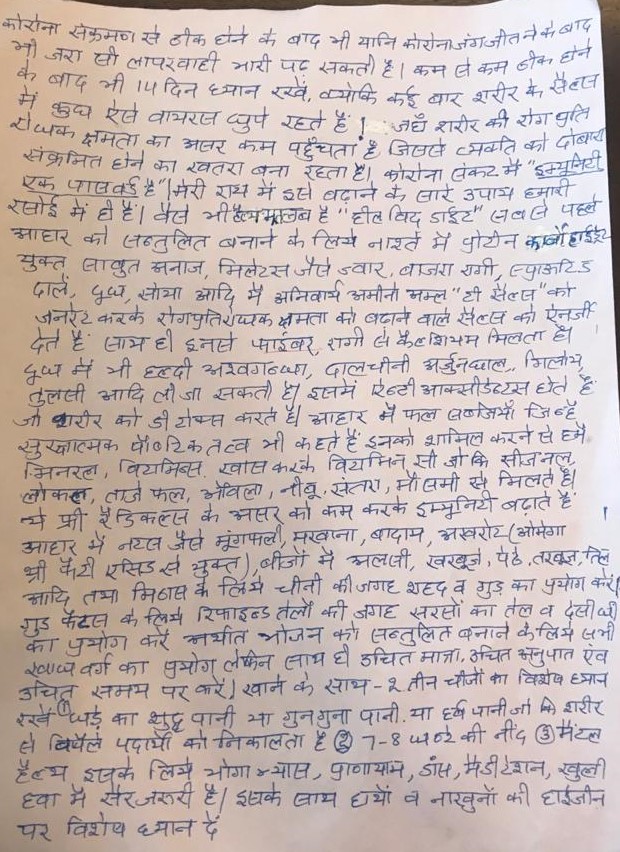 कोरोना संक्रमण से ठीक होने के बाद भी यानि कोरोना जंग जीतने के बाद
भी जरा सी लापरवाही भारी पड़ सकती है। कम से कम ठीक होने
के बाद भी 14 दिन ध्यान रखें, क्योंकि कई बार शरीर के सैल्स
में कुछ ऐसे वायरस छुपे रहते हैं। जहाँ शरीर की रोग प्रति
रोधक क्षमता का असर कम पहुँचता है जिससे व्यक्ति को दोबारा
संक्रमित होने का खतरा बना रहता है। कोरोना संकट में "इम्यूनिटी
एक पासवर्ड है"। मेरी राय में इसे बढ़ाने के सारे उपाय हमारी
रसोई में ही हैं। वैसे भी हैल्थ मतलब है "हील विद डाइट" सबसे पहले
आहार को सन्तुलित बनाने के लिये नाश्ते में प्रोटीन कार्बोहाईड्रेट
युक्त साबुत अनाज, मिलेटस जैसे ज्वार, बाजरा रागी, स्प्राऊटिड
दालें, दूध, सोया आदि में अनिवार्य अमीनो अम्ल "टी सैल्स" को
जनरेट करके रोगप्रतिरोधक क्षमता को बढ़ाने वाले सैल्स को ऐनर्जी
देते हैं साथ ही इनसे फाईबर, रागी से कैलशियम मिलता है।
दूध में भी हल्दी अश्वगन्धा, दालचीनी अर्जुनछाल, गिलोय,
तुलसी आदि ली जा सकती है। इसमें ऐन्टी आक्सीडेंटस होते हैं
जो शरीर को डीटोक्स करते हैं। आहार में फल सब्जियाँ जिन्हें
सुरक्षात्मक पौष्टिक तत्व भी कहते हैं इनको शामिल करने से हमें
मिनरल, विटामिन्स खास करके विटामिन सी जो कि सीजनल,
लोकल, ताजे फल, आँवला, नीबू, संतरा, मौसमी से मिलते हैं।
ये फ्री रैडिकल्स के असर को कम करके इम्यूनिटी बढ़ाते हैं
आहार में नटस जैसे मूंगफली, मखाना, बादाम, अखरोट (ओमेगा
थ्री फैटी एसिड से युक्त), बीजों में अलसी, खरबूजे, पेठे, तरबूज, तिल
आदि तथा मिठास के लिये चीनी की जगह शहद व गुड़ का प्रयोग करें।
गुड फैटस के लिये रिफाइन्ड तेलों की जगह सरसों का तेल व देसी घी
का प्रयोग करें अर्थात भोजन को सन्तुलित बनाने के लिये सभी
खाद्य वर्ग का प्रयोग लेकिन साथ ही उचित मात्रा, उचित अनुपात एंव
उचित समय पर करें। खाने के साथ - 2 तीन चीजों का विशेष ध्यान
रखें ① घड़े का शुद्ध पानी या गुनगुना पानी. या हर्ब पानी जो कि शरीर
से विषैले पदार्थों को निकालता है ② 7-8 घन्टे की नींद ③ मैंटल
हैल्थ इसके लिये योगाभ्यास, प्राणायाम, डांस, मैडीटेशन, खुली
हवा में सैर जरूरी है। इसके साथ हाथों व नाखुनों की हाईजीन
पर विशेष ध्यान दें